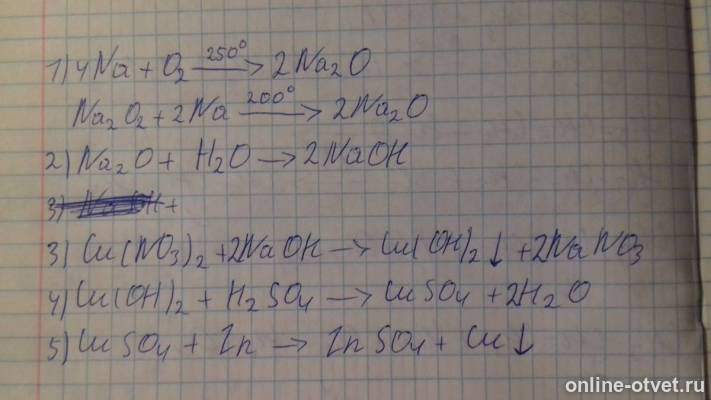 1) 4Na + O₂ 250° → 2Na₂O
Na₂O₂ + 2Na 200° → 2Na₂O
2) Na₂O + H₂O → 2NaOH
3) NaOH +
3) Cu(NO₃)₂ + 2NaOH → Cu(OH)₂↓ + 2NaNO₃
4) Cu(OH)₂ + H₂SO₄ → CuSO₄ + 2H₂O
5) CuSO₄ + Zn → ZnSO₄ + Cu↓
online-otvet.ru